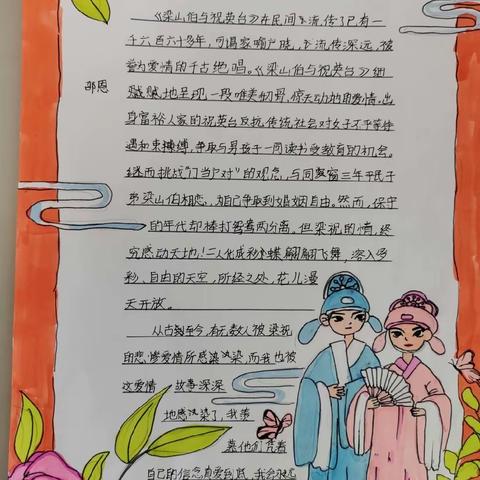 《梁山伯与祝英台》在民间流传了已有一
千六百六十多年，可谓家喻户晓，流传深远，被
誉为爱情的千古绝唱。《梁山伯与祝英台》细
邵恩
腻地呈现一段唯美切骨，惊天动地的爱情。出
身富裕人家的祝英台反抗传统社会对女子不平等待
遇和束缚，争取与男孩子一同读书受教育的机会。
继而挑战“门当户对”的观念，与同窗三年平民子
弟梁山伯相恋，为自己争取到婚姻自由。然而，保守
的年代却棒打鸳鸯两分离，但梁祝的情，终
究感动天地，二人化成彩蝶翩翩飞舞，溶入多
彩、自由的天空，所经之处，花儿漫
天开放。
从古到至今，有无数人被梁祝
的恋爱情所感染，而我也被
这爱情故事深深
地感染了，我羡
慕他们凭着
自己的信念真爱到底，我会永远